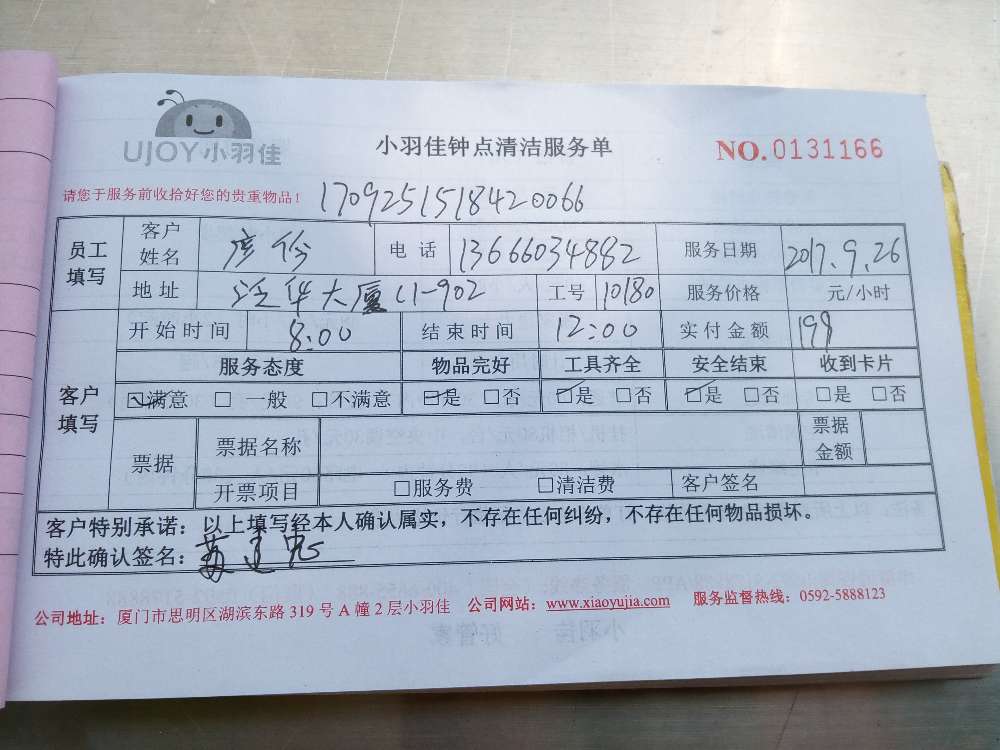 UJOY小羽佳
小羽佳钟点清洁服务单
NO.0131166
请您于服务前收拾好您的贵重物品！
1709251518420066
员工填写 客户姓名 电话 13666034882 服务日期 2017.9.26
地址 泛华大厦C1-902 工号 10180 服务价格 元/小时
客户填写 开始时间 8:00 结束时间 12:00 实付金额 199
服务态度 物品完好 工具齐全 安全结束 收到卡片
☑满意 □ 一般 □不满意 ☑是 □否 ☑是 □否 ☑是 □否 □是 □否
票据 票据名称 票据金额
开票项目 □服务费 □清洁费 客户签名
客户特别承诺：以上填写经本人确认属实，不存在任何纠纷，不存在任何物品损坏。
特此确认签名：
公司地址：厦门市思明区湖滨东路 319 号 A 幢 2 层小羽佳 公司网站：www.xiaoyujia.com 服务监督热线：0592-5888123